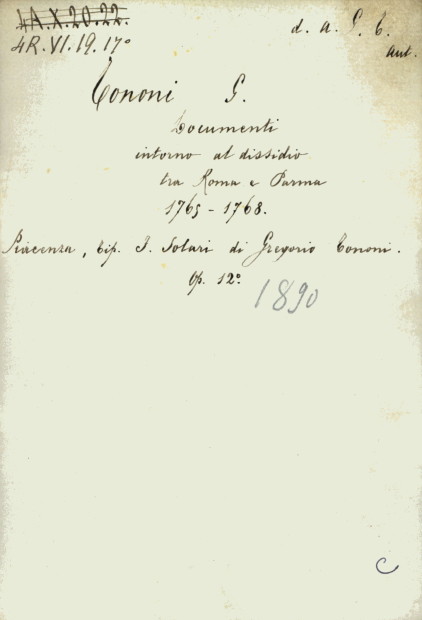 4A.X.20.22.
4R.VI.19.17°
d. a. P. C.
aut.
Tononi G.
Documenti
intorno al dissidio
tra Roma e Parma
1765-1768.
Piacenza, tip. F. Solari di Gregorio Tononi.
Op. 12°.
1890
C